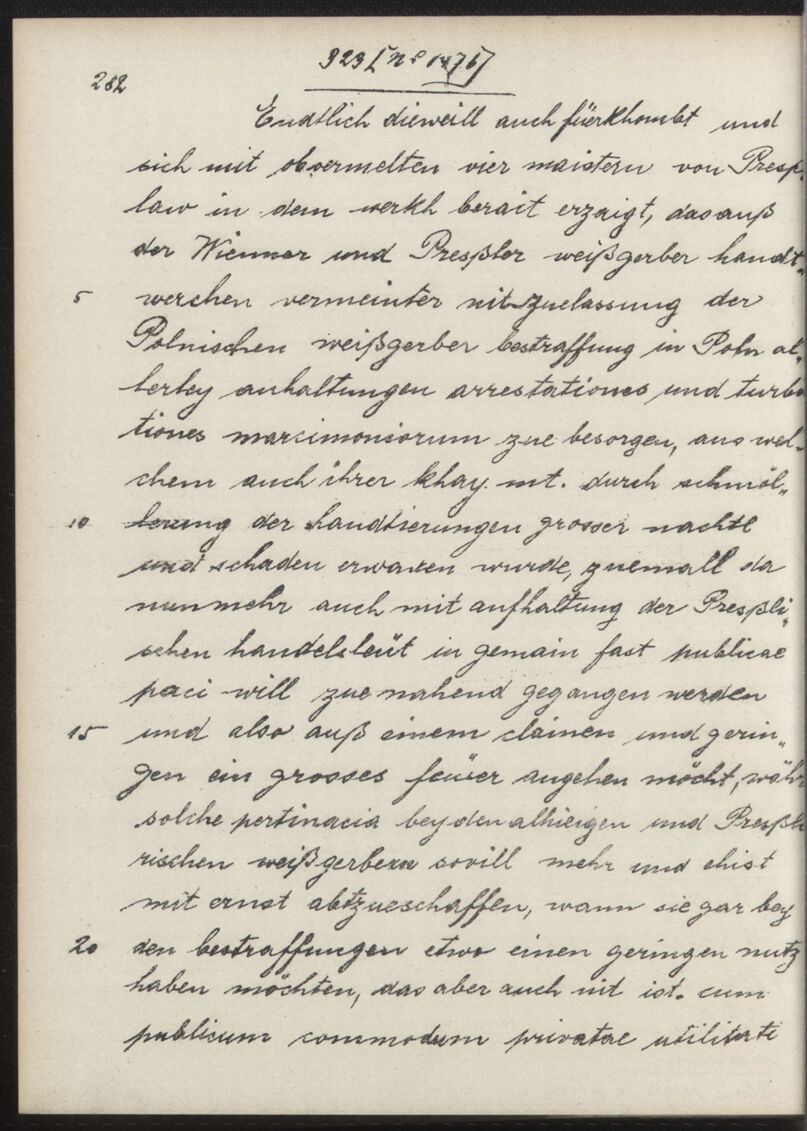 282
323 [Nº 1476]
Endtlich dieweill auch füerkhombt und
sich mit obvermelten vier maistern von Presß„
law in dem werkh berait erzaigt, das auß
der Wienner und Preßler weißgerber handt„
5 werchen vermeinter nit-zuelassung der
Polnischen weißgerber bestraffung in Poln al„
lerley anhaltungen arrestationes und turba
tiones marcimoniorum zue besorgen, aus wel„
chem auch ihrer khay. mt. durch schmöl„
10 lerung der handtierungen grosser nachtl
und schaden erwaxen wurde, zuemall da
nunmehr auch mit aufhaltung der Preßli„
schen handelsleüt in gemain fast publicae
paci will zue nahend gegangen werden
15 und also auß einem clainen und gerin„
gen ein grosses feüwer angehen möcht, währ
solche pertinacia bey den alhieigen und Preßle
rischen weißgerbern sovill mehr und ehist
mit ernst abtzueschaffen, wann sie gar bey
20 den bestraffungen etwo einen geringen nutz
haben möchten, das aber auch nit ist. cum
publicum commodum privatae utilitati